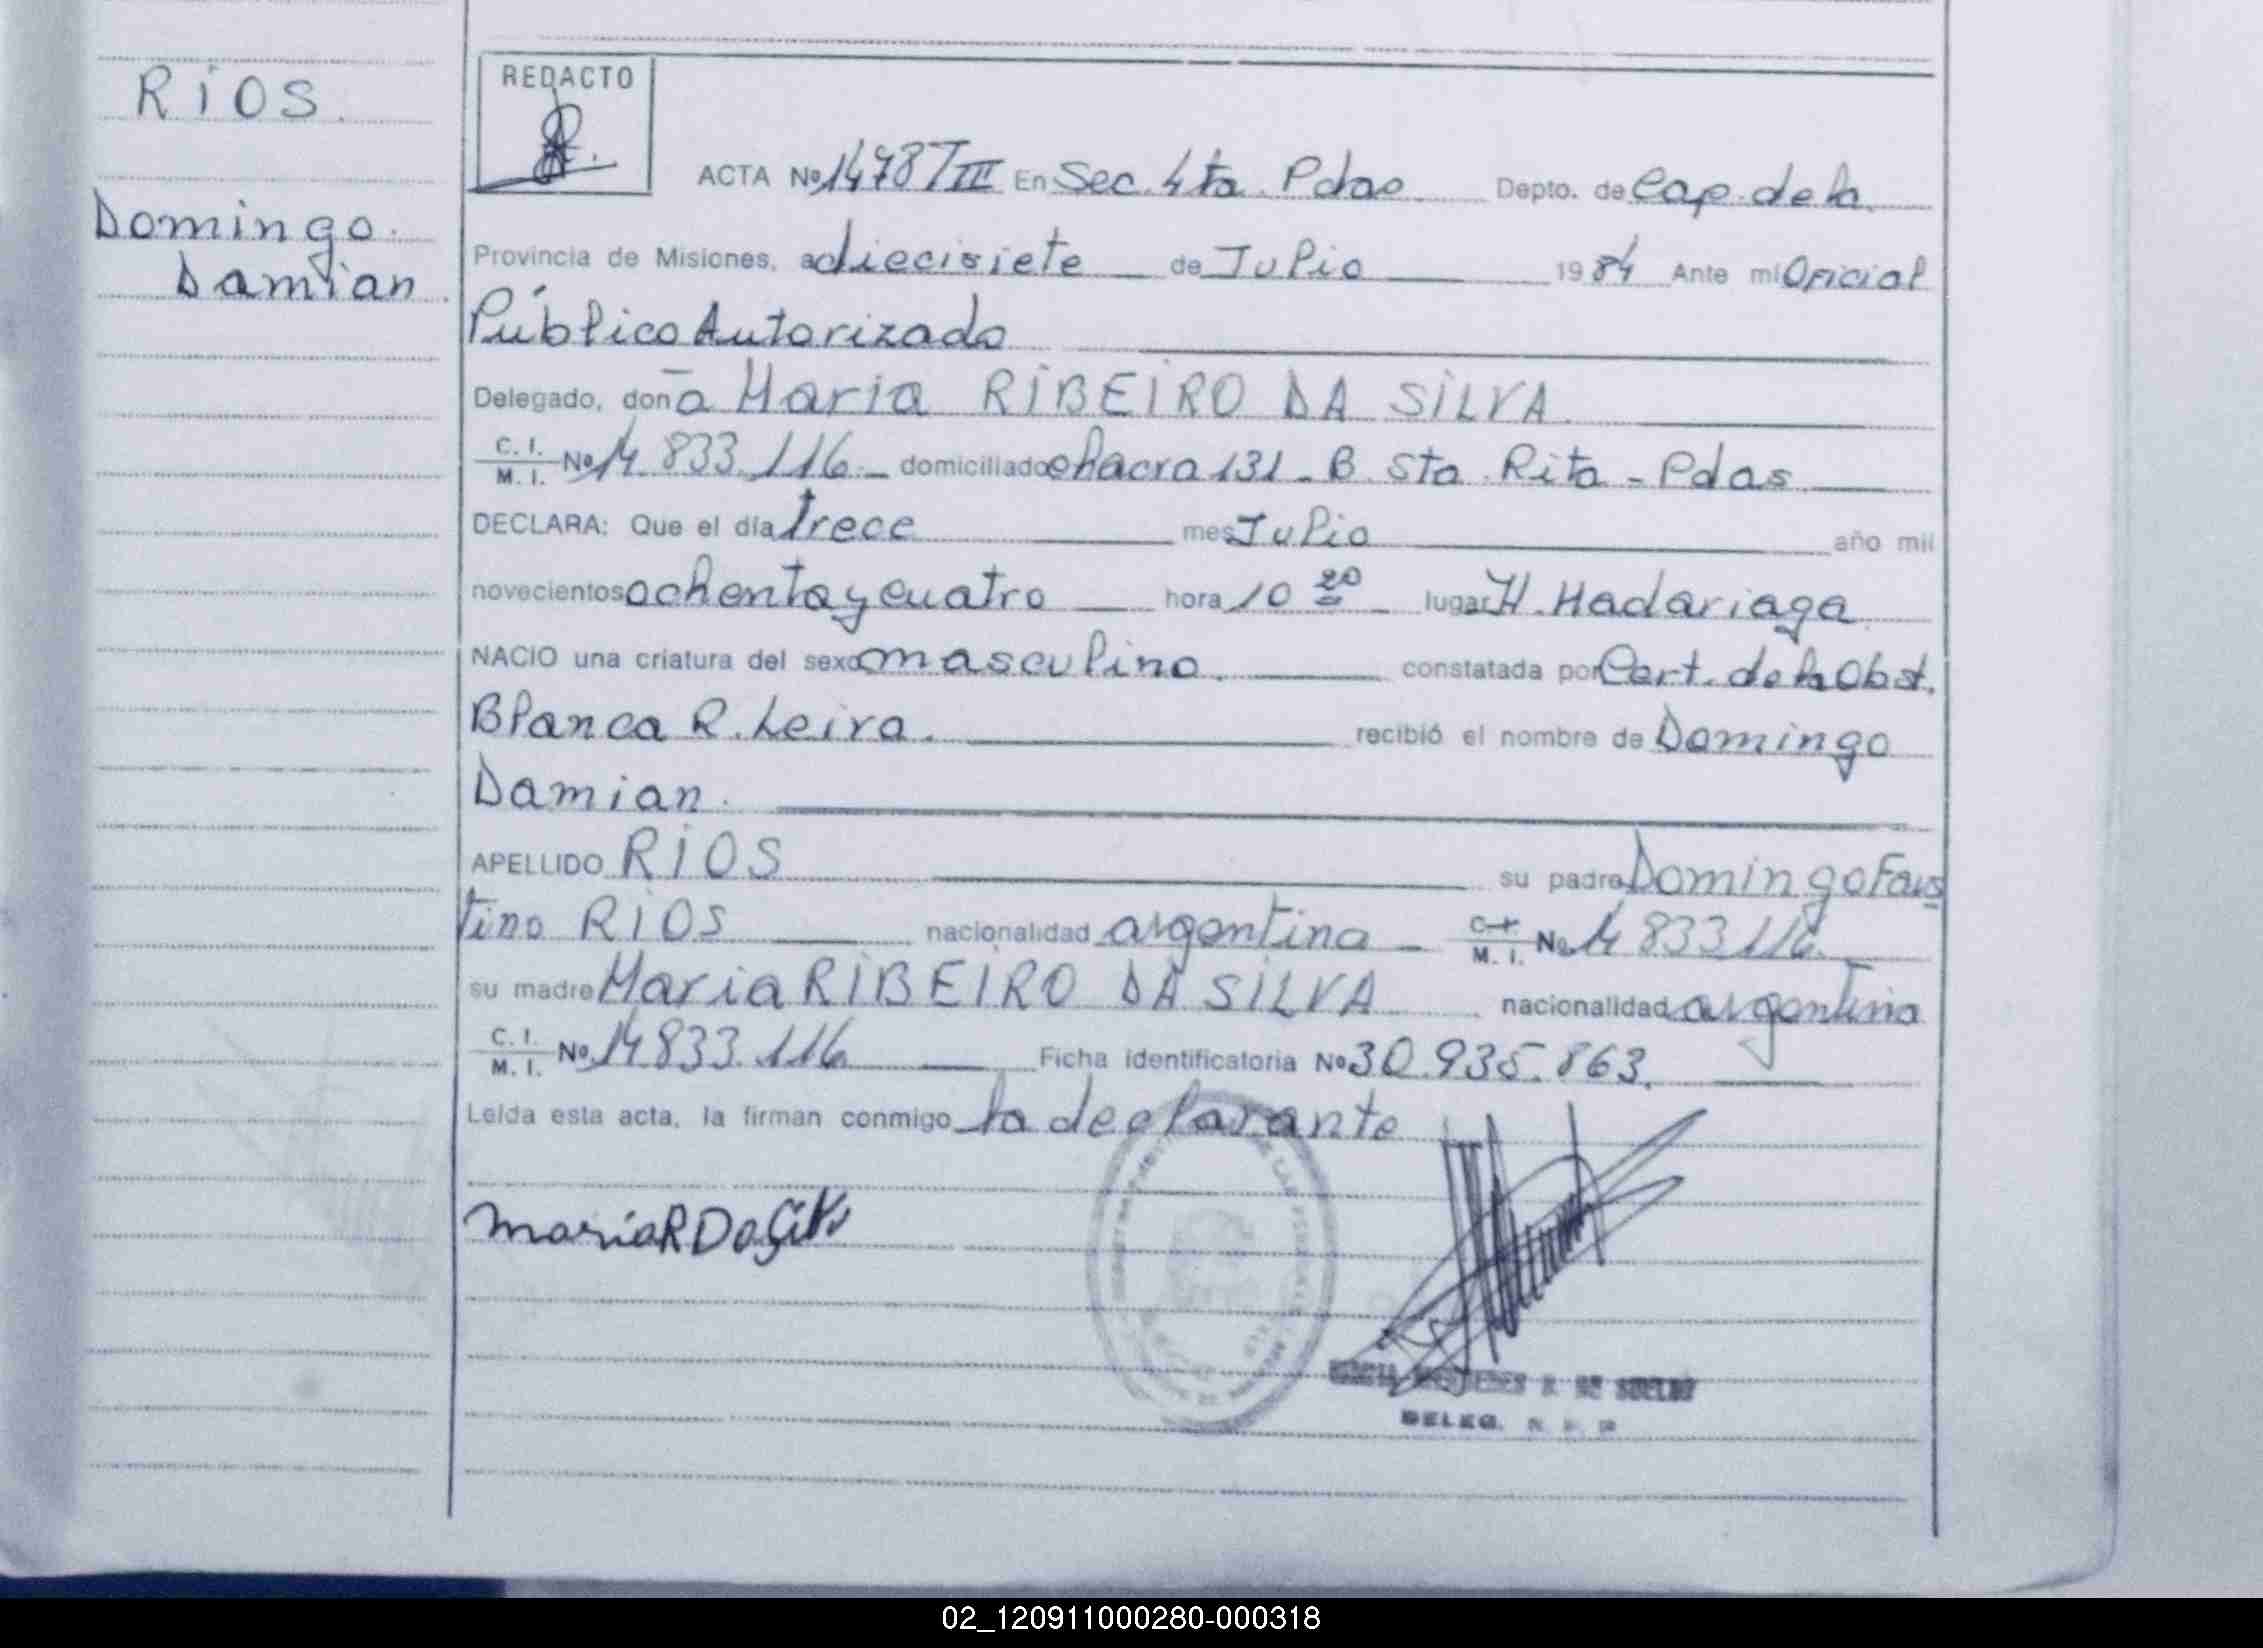 RÍOS.
Domingo
Damian
REDACTO
ACTA Nº 1478 T III En Sec. 4ta. Pdas Depto. de Cap. de la
Provincia de Misiones, a diecisiete de Julio 1984 Ante mí Oficial
Público Autorizado
Delegado, doña Maria RIBEIRO DA SILVA
C. I. / M. I. Nº 14.833.116 domiciliado chacra 131 - B. Sta. Rita - Pdas
DECLARA: Que el día trece mes Julio año mil
novecientos ochenta y cuatro hora 10 20 lugar H. Madariaga
NACIO una criatura del sexo masculino. constatada por Cert. de la Obst.
Blanca R. Leiva. recibió el nombre de Domingo
Damian.
APELLIDO RÍOS su padre Domingo Faus
tino RÍOS nacionalidad argentina C. I. / M. I. Nº 14 833 116
su madre Maria RIBEIRO DA SILVA nacionalidad argentina
C. I. / M. I. Nº 14 833.116 Ficha identificatoria Nº 30.935.863.
Leída esta acta, la firman conmigo la declarante
Maria R Da Silva
DELEG.
02_120911000280-000318